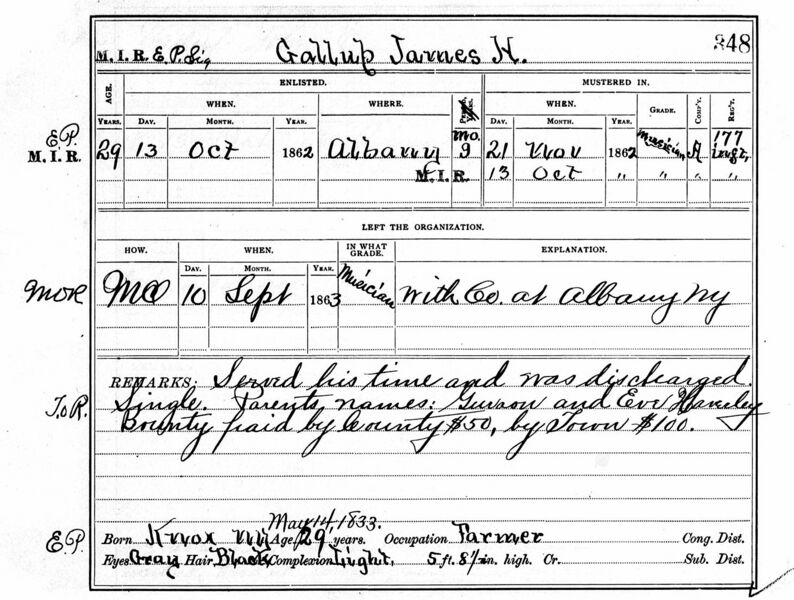 M. I. R. E. P. Sig Gallup James H. 348
AGE. ENLISTED. MUSTERED IN.
WHEN. WHERE. WHEN. GRADE. COMP'Y. REG'T.
YEARS. DAY. MONTH. YEAR. DAY. MONTH. YEAR.
E. P.
M. I. R. 29 13 Oct 1862 Albany mo. 9 21 Nov 1862 Musician A 177 inft,
M. I. R. 13 Oct " " " "
LEFT THE ORGANIZATION.
HOW. WHEN. IN WHAT GRADE. EXPLANATION.
DAY. MONTH. YEAR.
MOR MO 10 Sept 1863 Musician With Co. at Albany NY
REMARKS: Served his time and was discharged.
T.o.R. Single. Parents names: and Eve Haverley
Bounty paid by County $50, by Town $100.
May 14, 1833.
E.P. Born Knox NY Age 29 years. Occupation Farmer Cong. Dist.
Eyes Gray Hair Black Complexion Light, 5 ft. 8½ in. high. Cr. Sub. Dist.